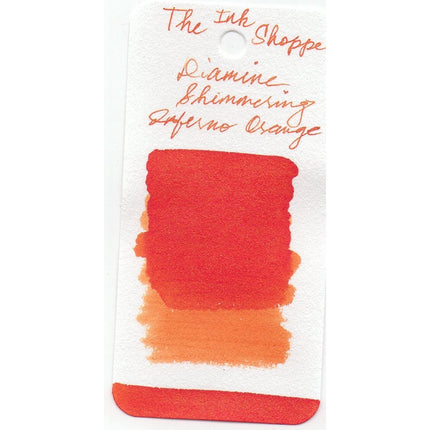 The Ink
Shoppe
Diamine
Shimmering
Inferno Orange